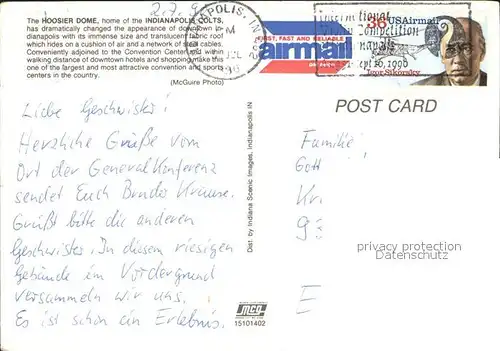 The HOOSIER DOME, home of the INDIANAPOLIS COLTS,
has dramatically changed the appearance of downtown In-
dianapolis with its immense size and translucent fabric roof
which rides on a cushion of air and a network of steel cables.
Conveniently adjoined to the Convention Center and within
walking distance of downtown hotels and shopping make this
one of the largest and most attractive convention and sports
centers in the country.
(McGuire Photo)
2.7.9
FIRST, FAST AND RELIABLE
airmail
par avion
International
Competition
1990
36 USAirmail
Igor Sikorsky
POST CARD
Liebe Geschwister!
Herzliche Grüße vom
Ort der General Konferenz
sendet Euch Bruder Krause.
Grüßt bitte die anderen
Geschwister. In diesem riesigen
Gebäude im Vordergrund
versammeln wir uns.
Es ist schon ein Erlebnis.
Dist. by Indiana Scenic Images, Indianapolis IN
Familie
Gott
Kr.
privacy protection
Datenschutz
E
mcg
15101402